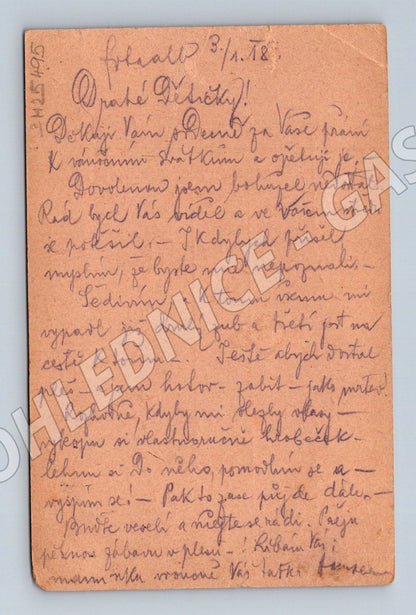 3./1. 18.
Drahé Dětičky!
Děkuji Vám srdečně za Vaše přání
k vánočním svátkům a opětuji je.
Dovolenou jsem bohužel nedostal
Rád bych Vás viděl a ve Vašem
se potěšil. — I kdybych přišel
myslím, že byste mne nepoznali. —
Šedivím, a k tomu všemu mi
vypadl již druhý zub a třetí jest na
cestě k tomu. Ještě abych dostal
pleš — a jsem hotov — zabit — jako mrtev!
Rozhodně, kdyby mi slezly vlasy —
vykopu si vlastnoručně hrobeček —
lehnu si do něho, pomodlím se a —
vyspím se. — Pak to zase půjde dále. —
Buďte veselí a mějte se rádi. Přeju
pěknou zábavu v plesu — ! Líbám Vás i
maminku Váš tatka
H25495
POHLEDNICE - GAS